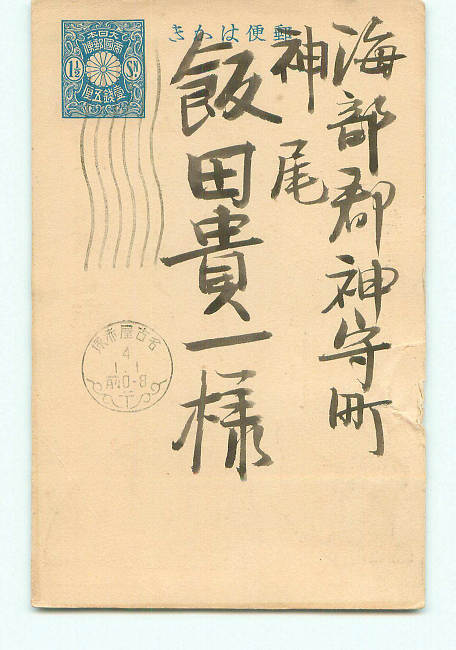 海部郡神守町
神尾
飯田貴一様
郵便はかき
大日本
帝國郵便
1½ Sⁿ
壹銭五厘
名古屋赤塚
4
1.1
前0-8